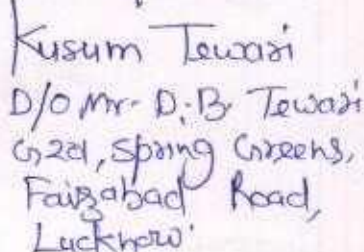 Kusum Tewari
D/O Mr. D.B. Tewari
G201, Spring Greens,
Faizabad Road,
Lucknow.